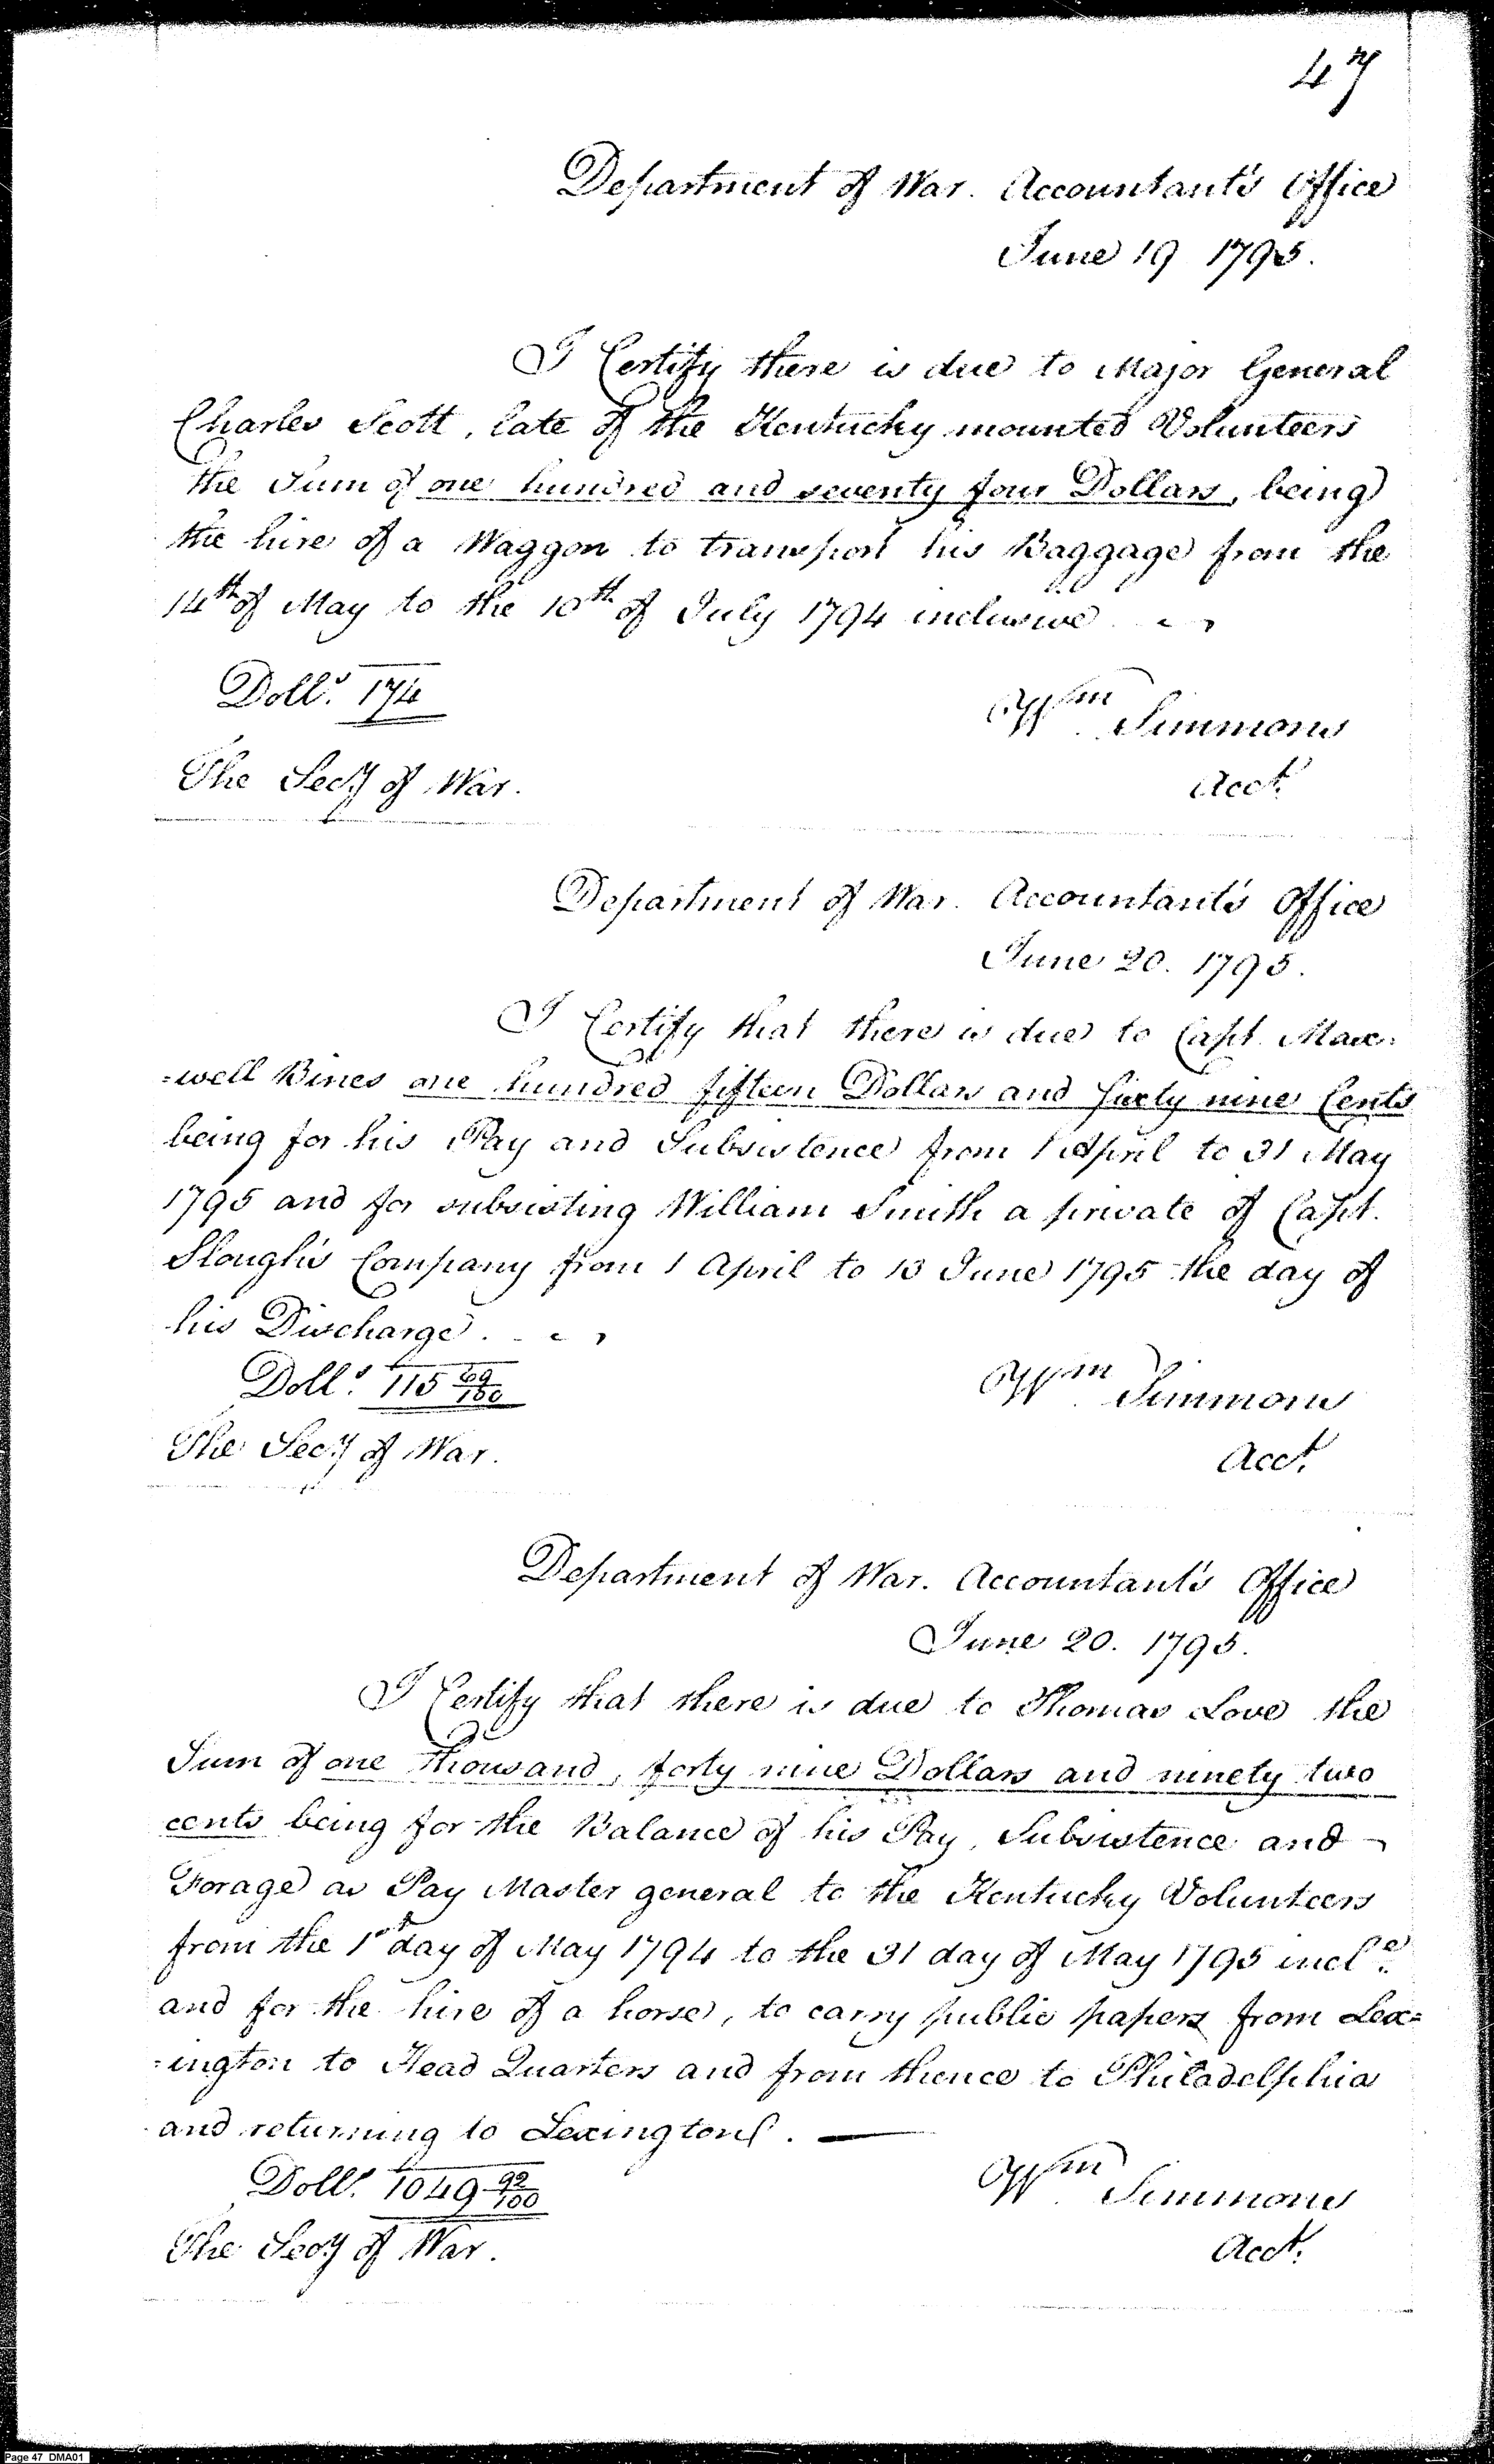 47
Department of War. Accountant's Office
June 19 1795.
I Certify there is due to Major General
Charles Scott, late of the Kentucky mounted Volunteers
the Sum of one hundred and seventy four Dollars, being
the hire of a Waggon to transport his Baggage from the
14th of May to the 10th of July 1794 inclusive.
Dolls. 174
Wm Simmons
The Secy of War.
Acct.
Department of War. Accountant's Office
June 20. 1795.
I Certify that there is due to Capt. Max=
=well Bines one hundred fifteen Dollars and Sixty nine Cents
being for his Pay and Subsistence from 1 April to 31 May
1795 and for subsisting William Smith a private of Capt.
Slough's Company from 1 April to 13 June 1795 the day of
his Discharge.
Dolls. 115 69/100
Wm Simmons
The Secy of War.
Acct.
Department of War. Accountant's Office
June 20. 1795.
I Certify that there is due to Thomas Love the
Sum of one thousand, forty nine Dollars and ninety two
cents being for the Balance of his Pay, Subsistence and
Forage as Pay Master general to the Kentucky Volunteers
from the 1st day of May 1794 to the 31 day of May 1795 incle.
and for the hire of a horse, to carry public papers from Lex=
=ington to Head Quarters and from thence to Philadelphia
and returning to Lexington. —
Dolls. 1049 92/100
Wm Simmons
The Secy of War.
Acct.
Page 47 DMA01